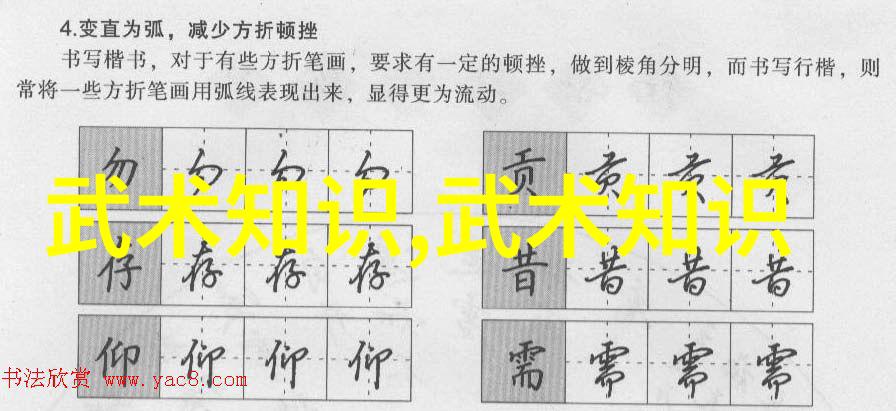 4.变直为弧，减少方折顿挫
书写楷书，对于有些方折笔画，要求有一定的顿挫，做到棱角分明，而书写行楷，则
常将一些方折笔画用弧线表现出来，显得更为流动。
勿 勿 勿 勿 贡 贡 贡 贡
武术知识,武术知识
存 存 存 存 昔 昔 昔 昔
仰 仰 仰 仰 需 需 需 需
书法欣赏 www.yac8.com